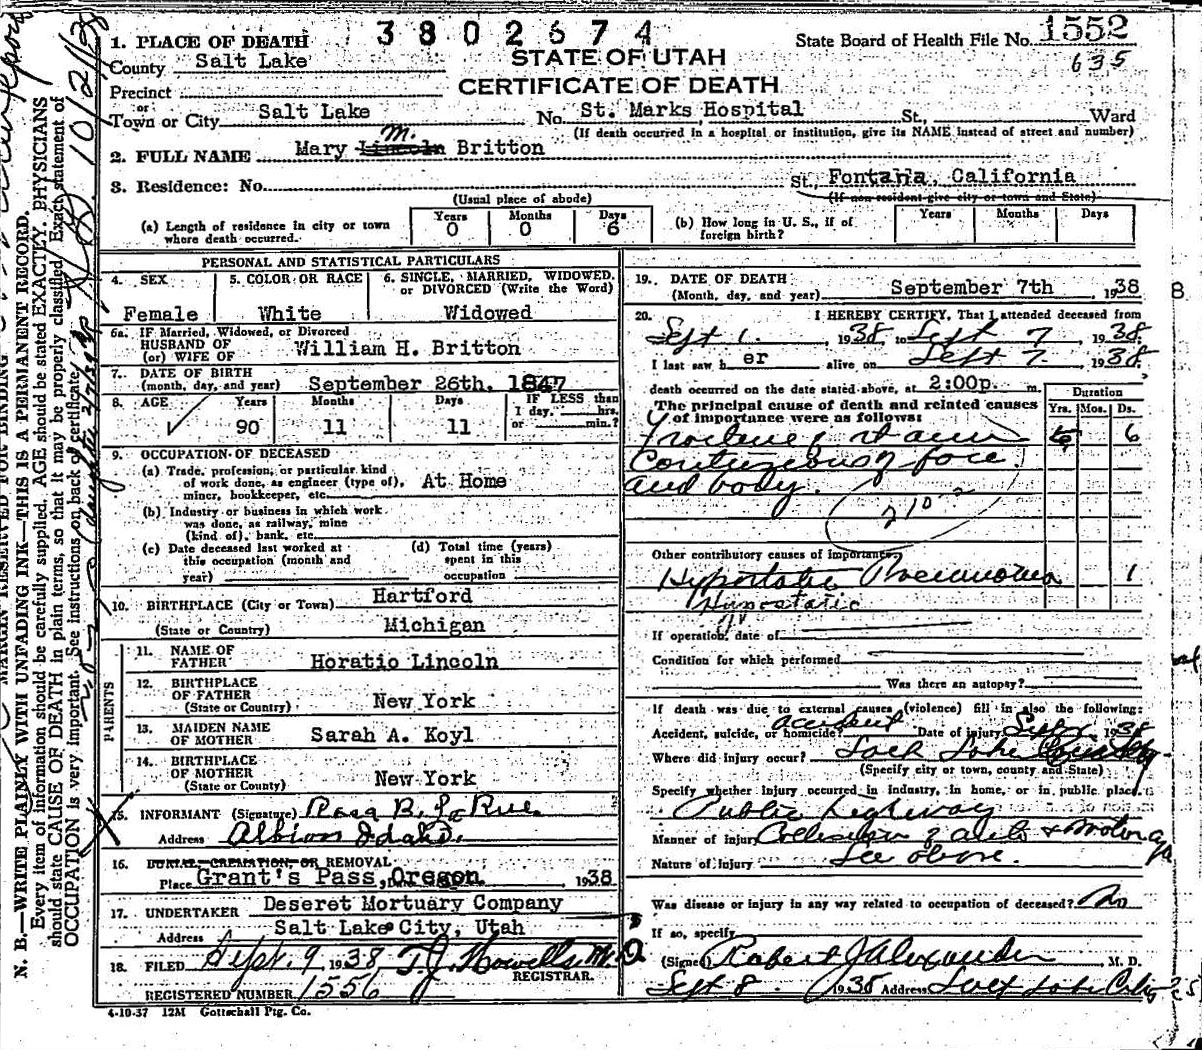 3802674
1. PLACE OF DEATH
State Board of Health File No. 1552
County Salt Lake
STATE OF UTAH
635
Precinct
CERTIFICATE OF DEATH
or
Town or City Salt Lake No. St. Marks Hospital St., Ward
(If death occurred in a hospital or institution, give its NAME instead of street and number)
M.
2. FULL NAME Mary Lincoln Britton
3. Residence: No. St., Fontana, California
(Usual place of abode) (If non-resident give city or town and State)
(a) Length of residence in city or town where death occurred. Years 0 Months 0 Days 6
(b) How long in U. S., if of foreign birth? Years Months Days
PERSONAL AND STATISTICAL PARTICULARS
4. SEX 5. COLOR OR RACE 6. SINGLE, MARRIED, WIDOWED, or DIVORCED (Write the Word)
Female White Widowed
6a. IF Married, Widowed, or Divorced
HUSBAND OF
(or) WIFE OF William H. Britton
7. DATE OF BIRTH
(month, day, and year) September 26th, 1847
8. AGE Years Months Days IF LESS than
1 day, hrs.
90 11 11 or min.?
9. OCCUPATION OF DECEASED
(a) Trade, profession, or particular kind
of work done, as engineer (type of), At Home
miner, bookkeeper, etc.
(b) Industry or business in which work
was done, as railway, mine
(kind of), bank, etc.
(c) Date deceased last worked at (d) Total time (years)
this occupation (month and spent in this
year) occupation
10. BIRTHPLACE (City or Town) Hartford
(State or Country) Michigan
PARENTS
11. NAME OF
FATHER Horatio Lincoln
12. BIRTHPLACE
OF FATHER New York
(State or Country)
13. MAIDEN NAME
OF MOTHER Sarah A. Koyl
14. BIRTHPLACE
OF MOTHER New York
(State or Country)
15. INFORMANT (Signature) Rosa B. La Rue.
Address Albion Idaho.
16. BURIAL, CREMATION, OR REMOVAL
Place Grant's Pass, Oregon 1938
17. UNDERTAKER Deseret Mortuary Company
Address Salt Lake City, Utah
18. FILED Sept. 9, 1938 T.J. Howells M.D.
REGISTRAR.
REGISTERED NUMBER 1556
4-10-37 12M Gottschall Ptg. Co.
19. DATE OF DEATH
(Month, day, and year) September 7th, 1938
20. I HEREBY CERTIFY, That I attended deceased from
Sept 1. 1938, to Sept 7, 1938.
I last saw her alive on Sept 7, 1938.
death occurred on the date stated above, at 2:00p. m.
Duration
The principal cause of death and related causes
of importance were as follows: Yrs. Mos. Ds.
Fracture, rt arm 6
Contusions of face
and body.
210
Other contributory causes of importance
Hypostatic Pneumonia 1
Hypostatic
If operation, date of
Condition for which performed
Was there an autopsy?
If death was due to external causes (violence) fill in also the following:
Accident, suicide, or homicide? accident Date of injury Sept 1938
Where did injury occur? Salt Lake County
(Specify city or town, county and State)
Specify whether injury occurred in industry, in home, or in public place.
Public highway
Manner of injury Collision of auto & motorcycle
Nature of injury See above.
Was disease or injury in any way related to occupation of deceased? No
If so, specify
(Signed) Robert J Alexander M. D.
Sept 8. 1938 Address Salt Lake City
B
MARGIN RESERVED FOR BINDING
N. B.—WRITE PLAINLY WITH UNFADING INK—THIS IS A PERMANENT RECORD.
Every item of information should be carefully supplied. AGE should be stated EXACTLY. PHYSICIANS
should state CAUSE OF DEATH in plain terms, so that it may be properly classified. Exact statement of
OCCUPATION is very important. See instructions on back of certificate.
10/21/38